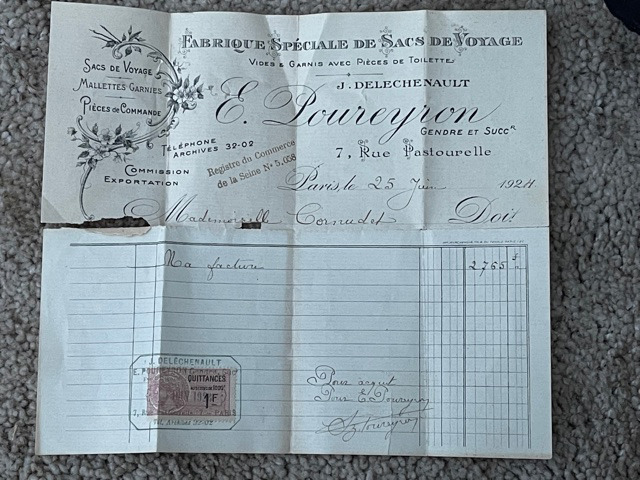 FABRIQUE SPÉCIALE DE SACS DE VOYAGE
VIDES & GARNIS AVEC PIÈCES DE TOILETTE
SACS DE VOYAGE
MALLETTES GARNIES
PIÈCES DE COMMANDE
J. DELECHENAULT
E. Poureyron
GENDRE ET SUCCR
TÉLÉPHONE
ARCHIVES 32-02
Registre du Commerce
de la Seine No 5,058
7, Rue Pastourelle
COMMISSION
EXPORTATION
Paris, le 25 Juin 1924
Mademoiselle Cornudet Doit
Ma facture 2765
J. DELÉCHENAULT
E. POUREYRON
QUITTANCES
1F
PARIS
Tél. Archives 32-02
Pour acquit
Pour E. Poureyron